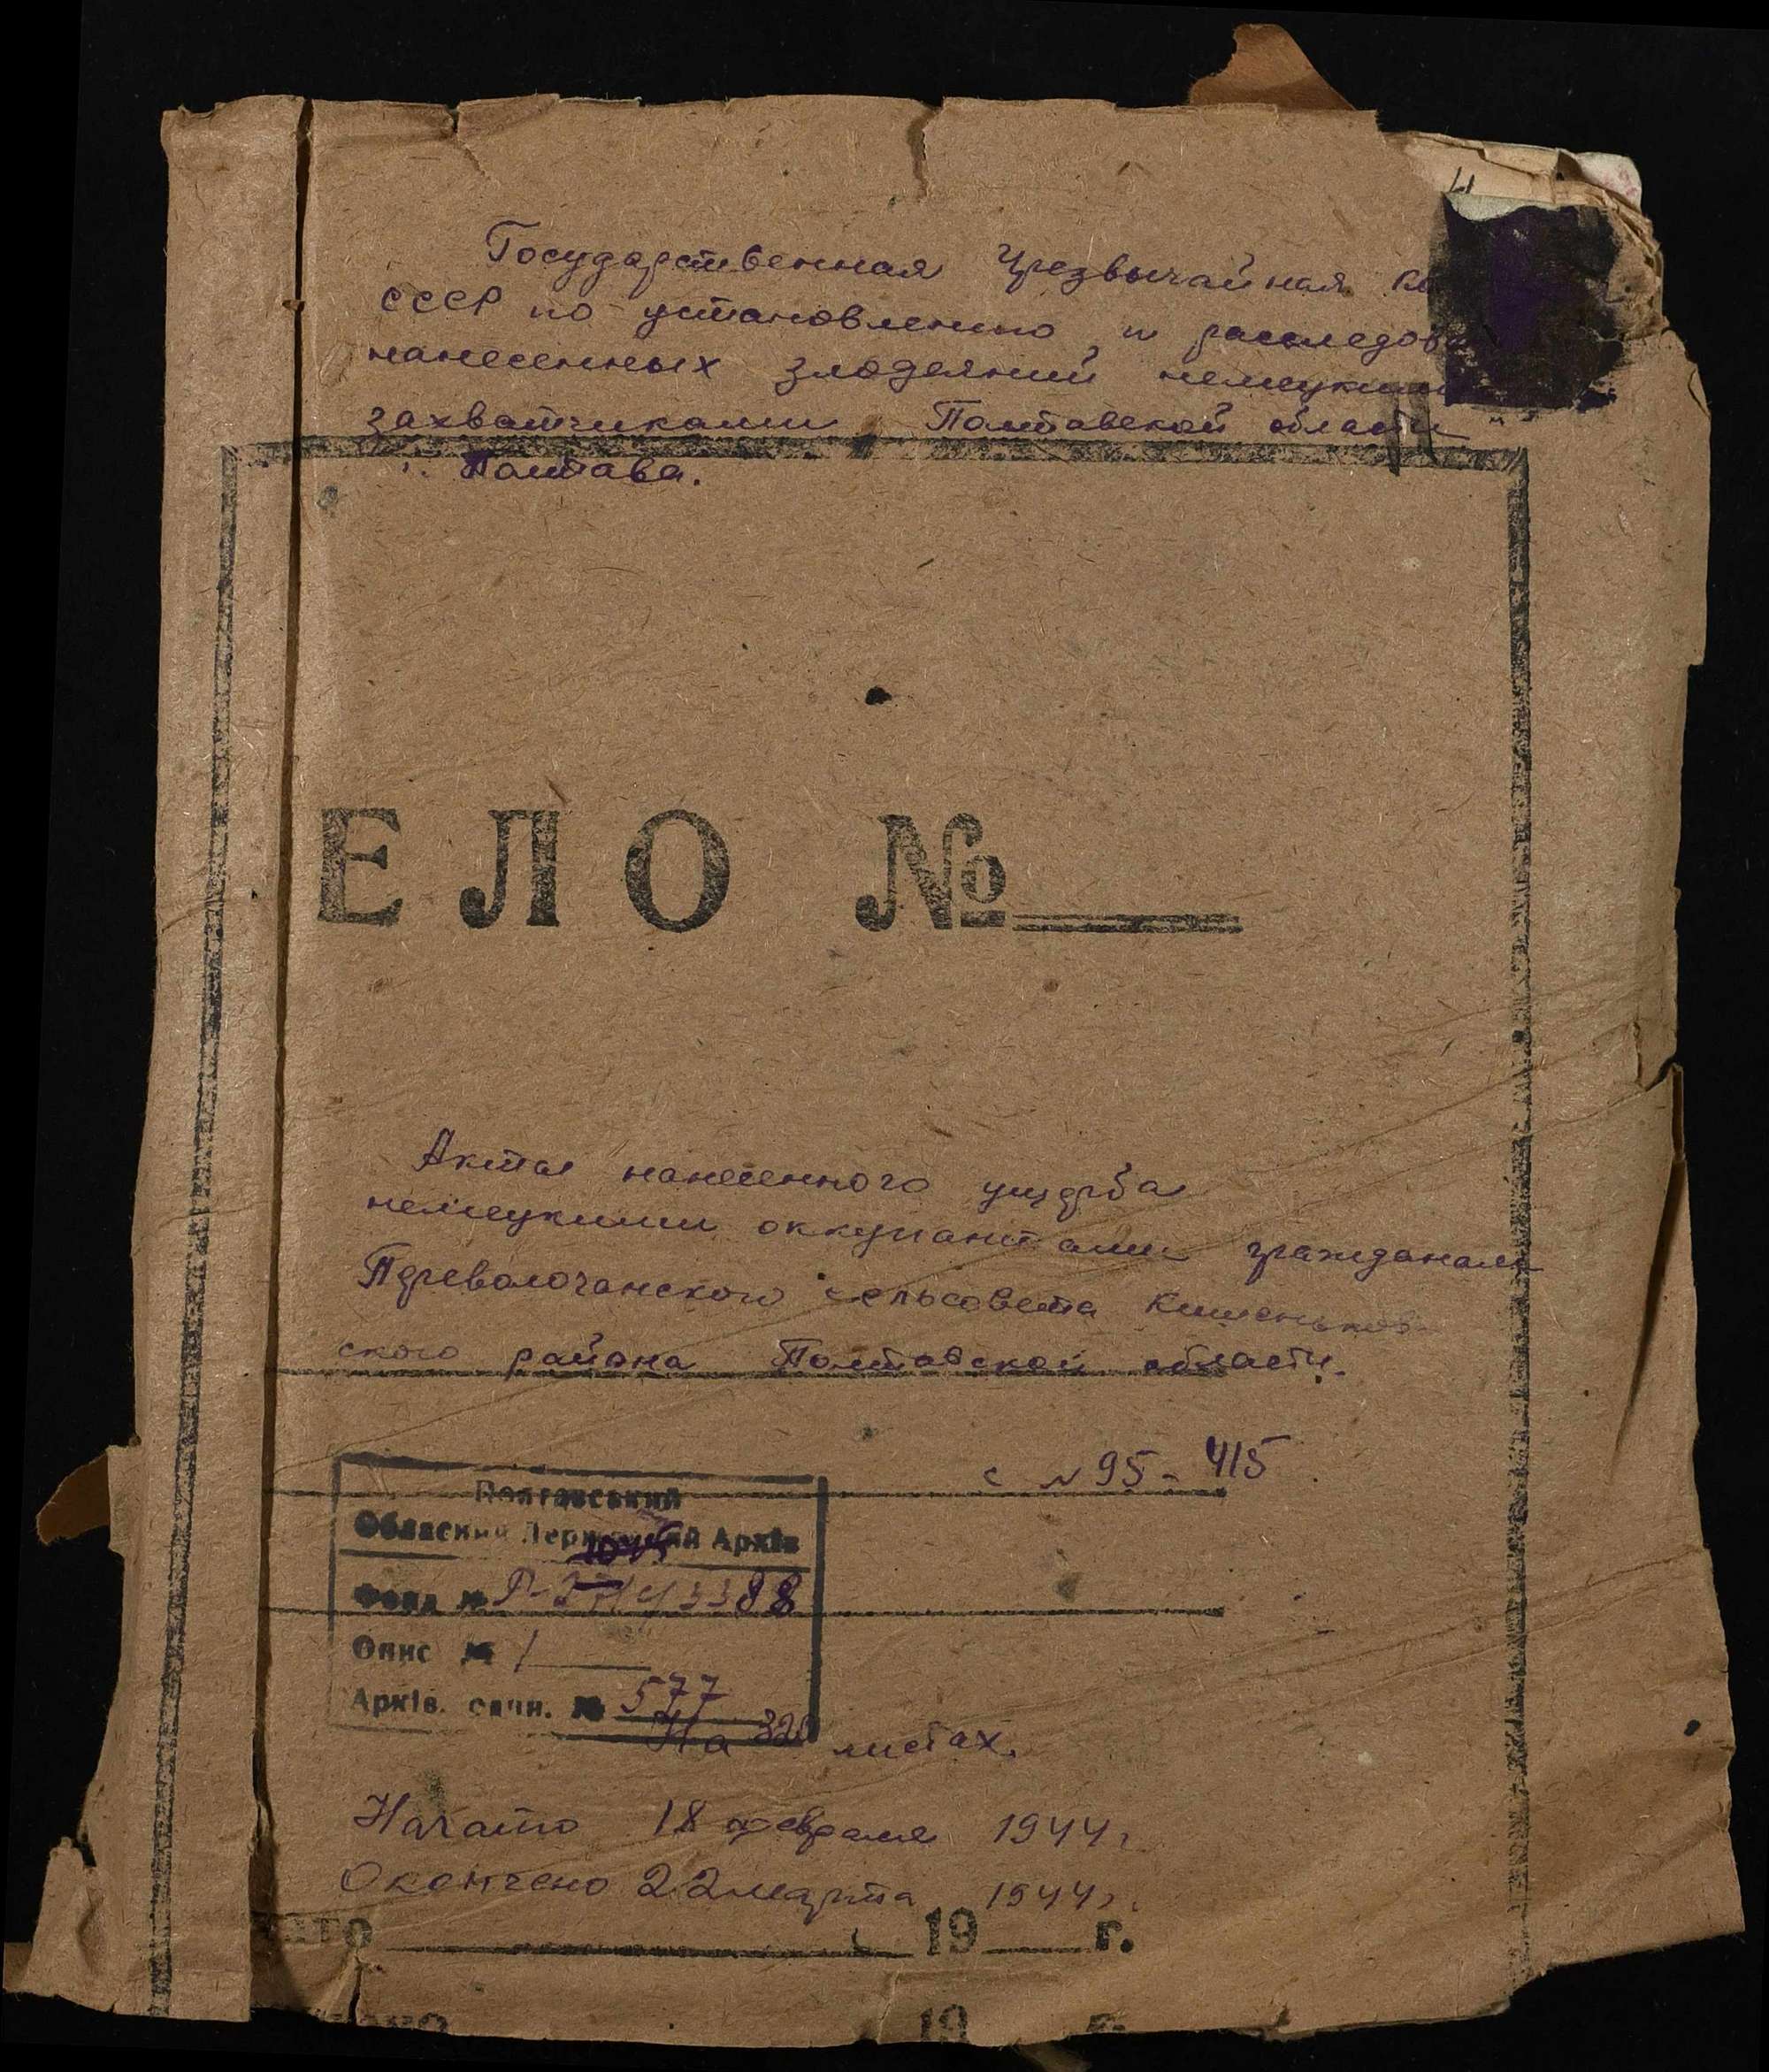 Государственная Чрезвычайная
СССР по установлению и расследов
нанесенных злодеяний немецкими
захватчиками Полтавской области
г. Полтава.
ЕЛО №
Акты нанесенного ущерба
немецкими оккупантами гражданам
Переволочанского сельсовета Кишеньков-
ского района Полтавской области.
с № 95 - 415
Полтавський
Обласний Державний Архів
Фонд № Р-3388
Опис № 1
Архів. один. № 577
На 320 листах.
Начато 18 февраля 1944 г.
Окончено 22 марта 1944 г.
ато 19 г.
19 г.